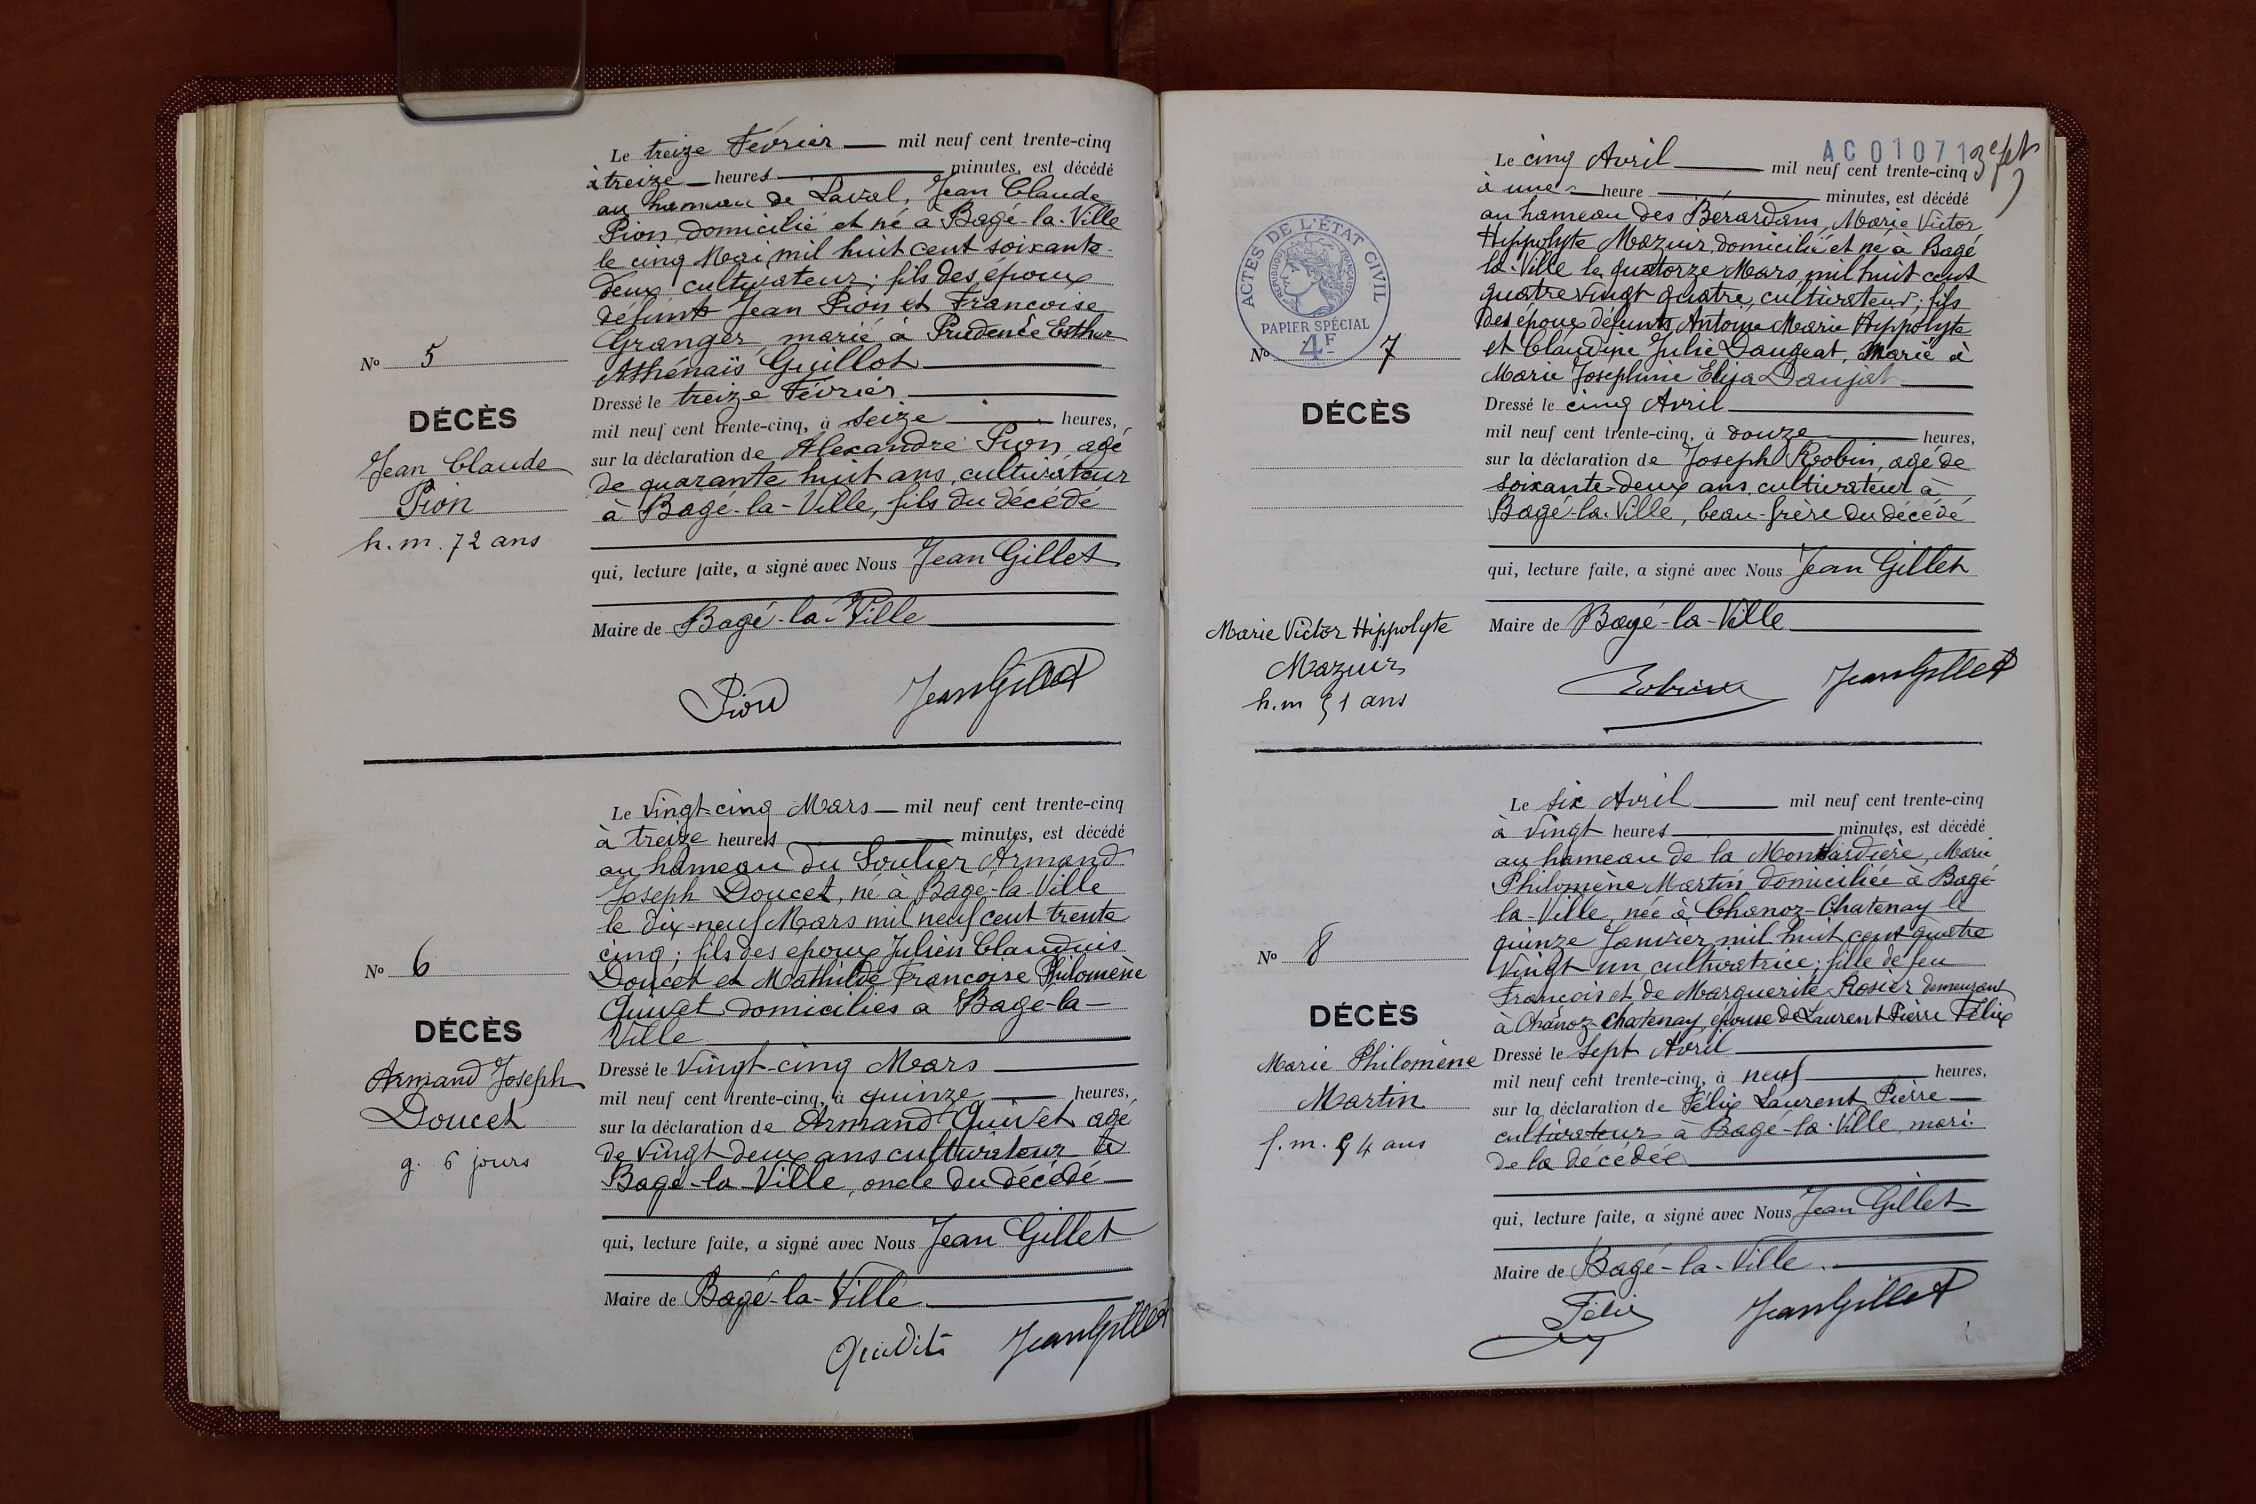 Le treize Février mil neuf cent trente-cinq
à treize heures minutes, est décédé
au hameau de Laval, Jean Claude
Pion domicilié et né à Bagé-la-Ville
le cinq Mai mil huit cent soixante-
deux cultivateur; fils des époux
défunts Jean Pion et Françoise
Granger, marié à Prudence Esther
Athénaïs Guillot
Dressé le treize Février
mil neuf cent trente-cinq, à seize heures,
sur la déclaration de Alexandre Pion, agé
de quarante huit ans, cultivateur
à Bagé-la-Ville, fils du décédé
qui, lecture faite, a signé avec Nous Jean Gillet
Maire de Bagé-la-Ville
Pion JeanGillet
No 5
DÉCÈS
Jean Claude
Pion
h.m. 72 ans
Le vingt-cinq Mars mil neuf cent trente-cinq
à treize heures minutes, est décédé
au hameau du Soulier Armand
Joseph Doucet, né à Bagé-la-Ville
le dix-neuf Mars mil neuf cent trente
cinq; fils des époux Julien Claudius
Doucet et Mathilde Françoise Philomène
Quivet domiciliés à Bagé-la-
Ville
Dressé le vingt-cinq Mars
mil neuf cent trente-cinq, à quinze heures,
sur la déclaration de Armand Quivet agé
de vingt deux ans cultivateur à
Bagé-la-Ville, oncle du décédé
qui, lecture faite, a signé avec Nous Jean Gillet
Maire de Bagé-la-Ville
JeanGillet
No 6
DÉCÈS
Armand Joseph
Doucet
g. 6 jours
AC01071
Le cinq Avril mil neuf cent trente-cinq
à une heure minutes, est décédé
au hameau des Bérardans, Marie Victor
Hippolyte Mazuir domicilié et né à Bagé
la-Ville le quatorze Mars mil huit cent
quatre vingt quatre, cultivateur; fils
des époux défunts Antoine Marie Hippolyte
et Claudine Julie Daugeat, Marié à
Marie Josephine Elisa Daujat
Dressé le cinq Avril
mil neuf cent trente-cinq, à douze heures,
sur la déclaration de Joseph Robin, agé de
soixante-deux ans cultivateur à
Bagé-la-Ville, beau-frère du décédé
qui, lecture faite, a signé avec Nous Jean Gillet
Maire de Bagé-la-Ville
Robin JeanGillet
ACTES DE L'ÉTAT CIVIL
RÉPUBLIQUE FRANÇAISE
PAPIER SPÉCIAL
4F
No 7
DÉCÈS
Marie Victor Hippolyte
Mazuir
h.m 51 ans
Le six Avril mil neuf cent trente-cinq
à vingt heures minutes, est décédé
au hameau de la Montardière, Marie
Philomène Martin domiciliée à Bagé-
la-Ville, née à Chanoz-Chatenay le
quinze Janvier mil huit cent quatre
vingt un cultivatrice; fille de feu
François et de Marguerite Rosier demeurant
à Chanoz-Chatenay, épouse de Laurent Pierre Félix
Dressé le sept Avril
mil neuf cent trente-cinq, à neuf heures,
sur la déclaration de Félix Laurent Pierre
cultivateur à Bagé-la-Ville mari
de la décédée
qui, lecture faite, a signé avec Nous Jean Gillet
Maire de Bagé-la-Ville
Félix JeanGillet
No 8
DÉCÈS
Marie Philomène
Martin
f.m. 54 ans